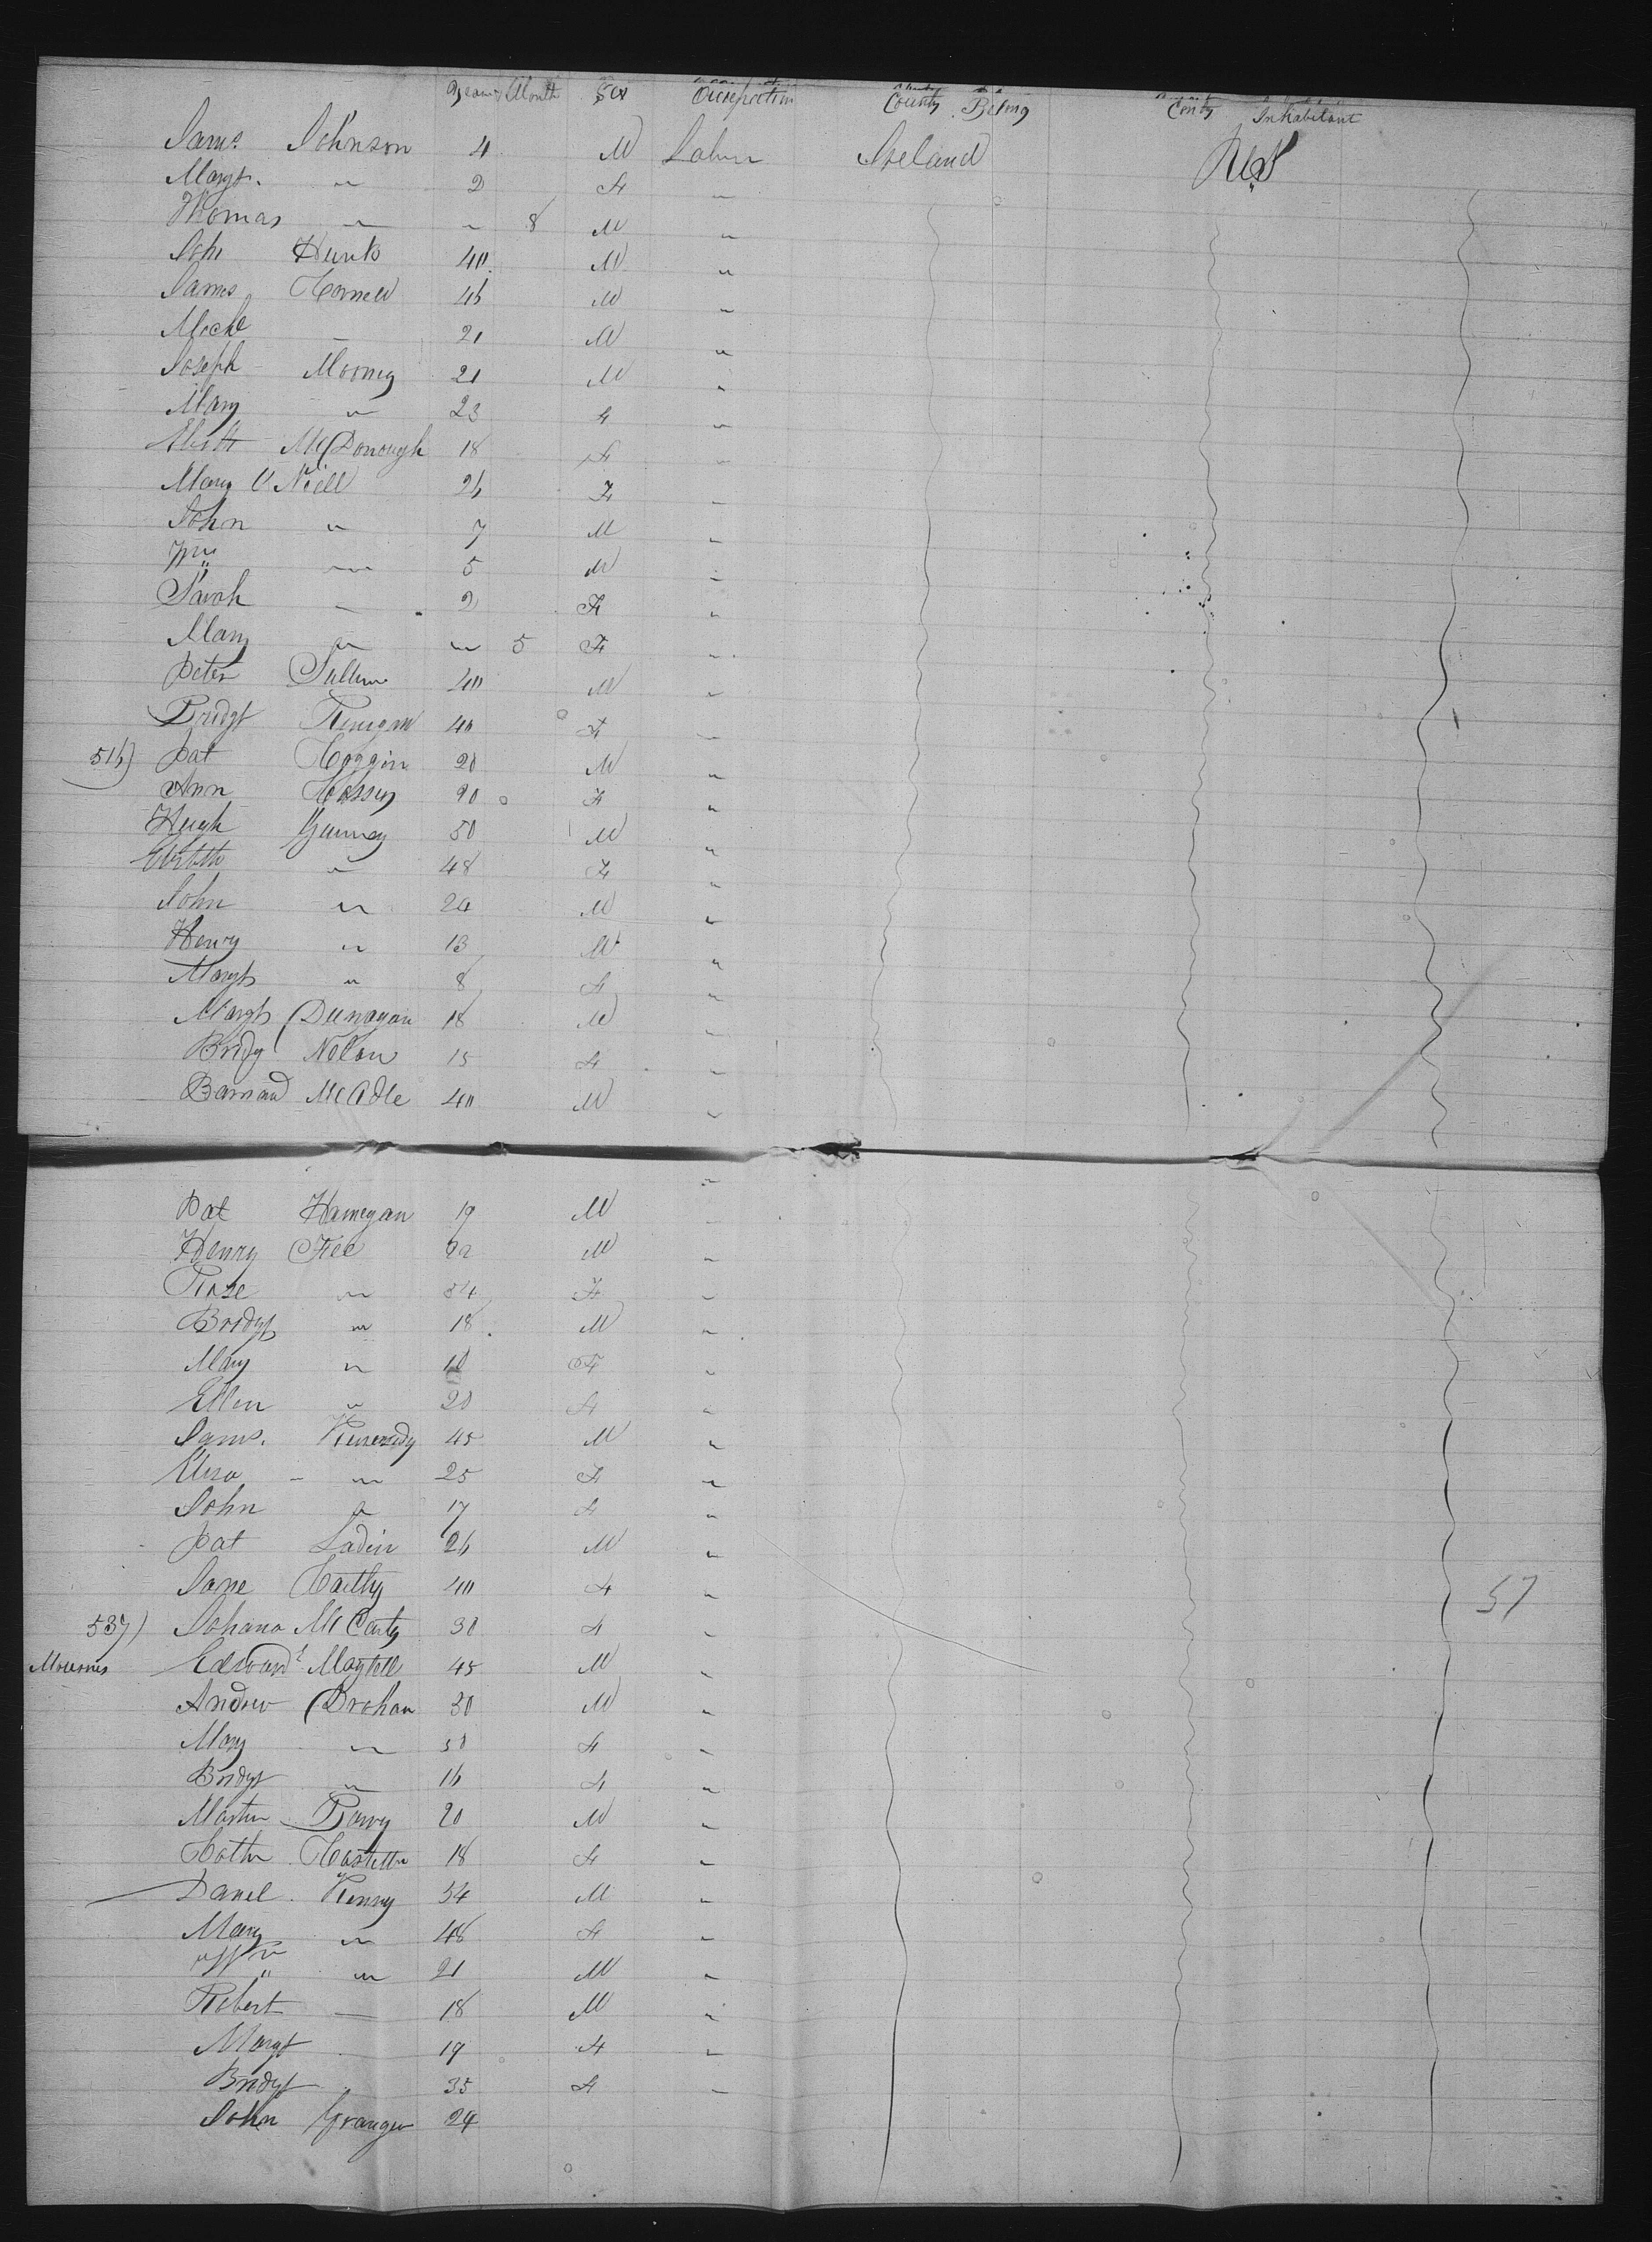 Years Month Sex Occupation County Belong County Inhabitant
Jams Johnson 4 M Labur Ireland U.S
Margt. " 2 F "
Thomas " " 8 M "
John Hunts 40 M "
James Connell 46 M "
Michl " 21 M "
Joseph Mooney 21 M "
Mary " 23 F "
Elisth McDonough 18 F "
Mary O Niell 26 F "
John " 7 M "
Wm " 5 M "
Sarah " 2 F "
Mary " " 5 F "
Peter 40 M "
Bridgt 40 F "
516) Pat Coggin 20 M "
Ann Cassey 20 F "
Hugh 50 M "
Elisbth " 48 F "
John " 24 M "
Henry " 13 M "
Margt " 8 F "
Margt Dunagan 18 M "
Bridg Nolan 15 F "
Barnard McAdle 40 M "
Pat Hanegan 19 M "
Henry Fee M "
Rose " 54 F "
Bridgt " 18 M "
Mary " 10 F "
Ellen " 20 F "
Jams. Kennedy 45 M "
Eliza " 25 F "
John " 17 F "
Pat Ladin 26 M "
Jane 40 F "
57
537) Johana McCarty 30 F "
Edward 45 M "
Andrew Drohan 30 M "
Mary " 30 F "
Bridgt " 16 F "
Martin Barry 20 M "
Cathn 18 F "
Danel Kenny 54 M "
Mary " 48 F "
Wm " 21 M "
Robert " 18 M "
Margt 19 F "
Bridgt 35 F "
John Granger 24